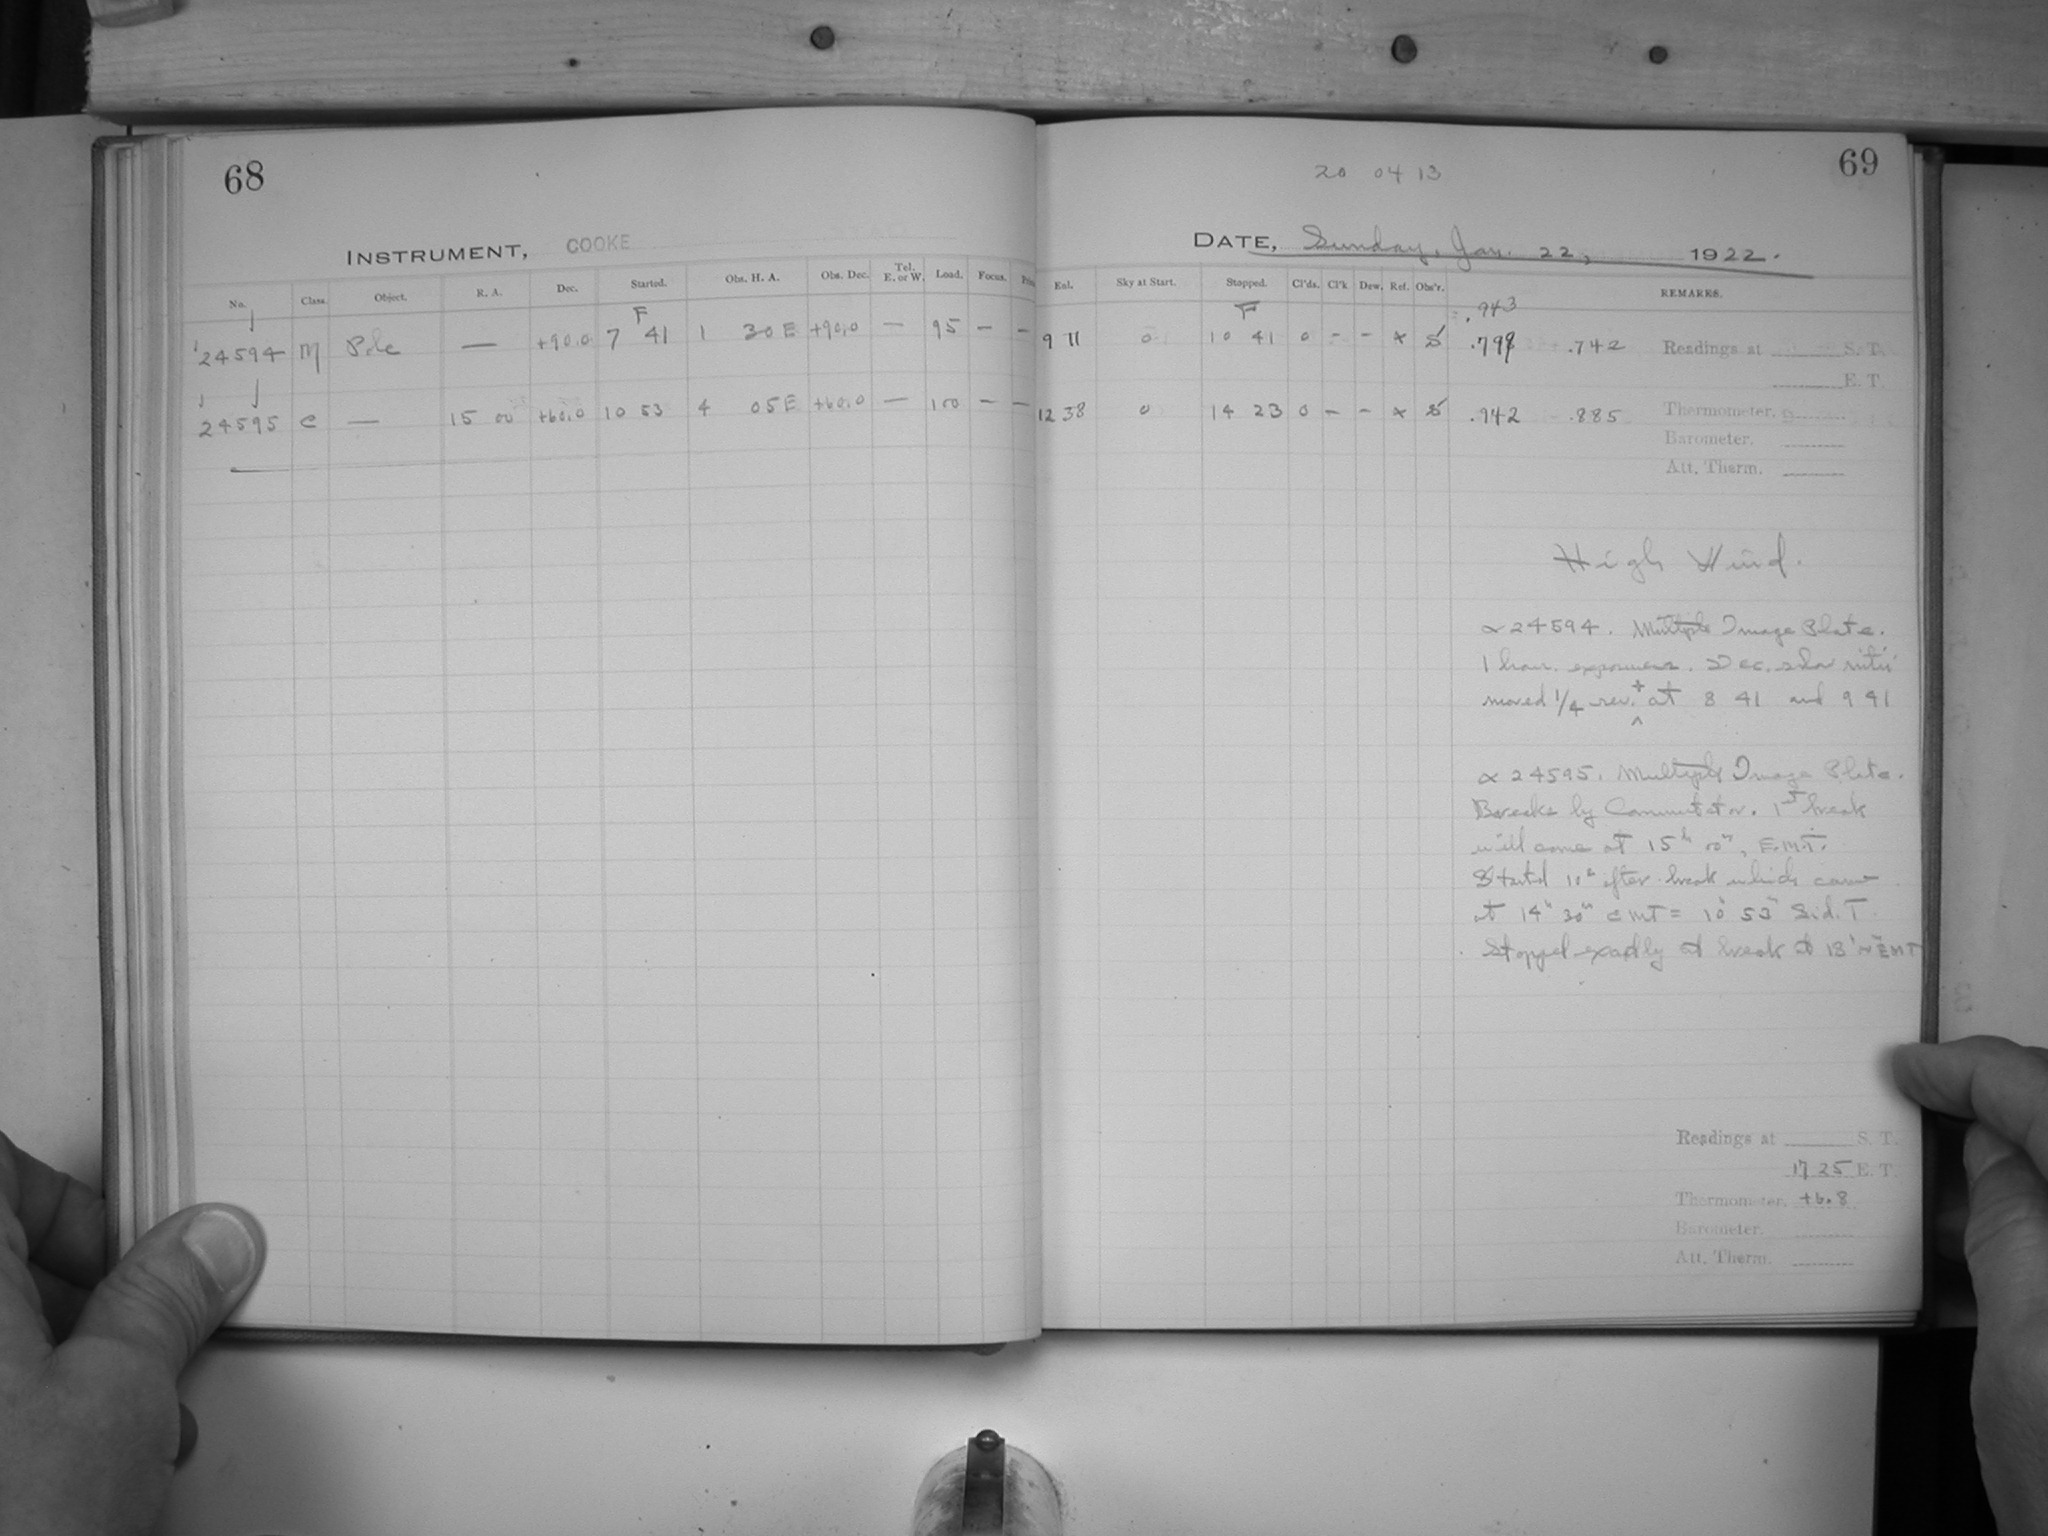 68
INSTRUMENT, COOKE
No. Class. Object. R. A. Dec. Started. Obs. H. A. Obs. Dec. Tel. E. or W. Load. Focus.
F
24594 M Pole — +90.0 7 41 1 30 E +90.0 — 95 — —
24595 C — 15 00 +60.0 10 53 4 05 E +60.0 — 100 — —
69
20 04 13
DATE, Sunday, Jan. 22, 1922.
Sky at Start. Stopped. Cl'ds. Cl'k Dew. Ref. Obs'r. REMARKS.
F .943
9 11 0 10 41 0 - - x S .798 .742 Readings at S. T.
E. T.
12 38 0 14 23 0 - - x S .942 .885 Thermometer.
Barometer.
Att. Therm.
High Wind.
α 24594. Multiple Image Plate.
1 hour exposures. Dec. slow
moved 1/4 rev. + at 8 41 and 9 41
α 24595. Multiple Image Plate.
Breaks by Commutator. 1st break
will come at 15h 00m, E.M.T.
Started 10s after break which came
at 14h 30m EMT = 10h 53m Sid. T.
Stopped exactly at break at 18h EMT
Readings at S. T.
17 25 E. T.
Thermometer. +6.8
Barometer.
Att. Therm.